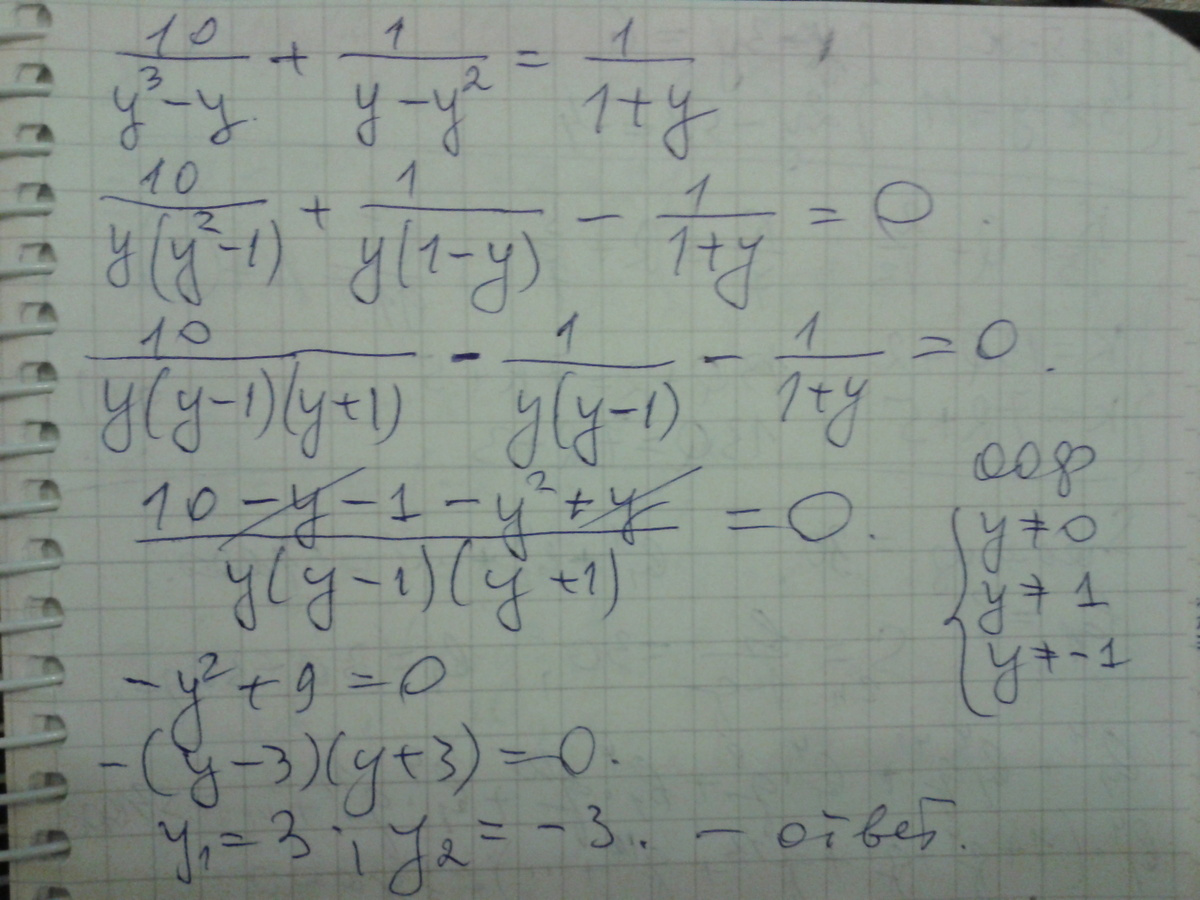 10/(y³-y) + 1/(y-y²) = 1/(1+y)
10/(y(y²-1)) + 1/(y(1-y)) - 1/(1+y) = 0.
10/(y(y-1)(y+1)) - 1/(y(y-1)) - 1/(1+y) = 0.
(10-y-1-y²+y)/(y(y-1)(y+1)) = 0.
ООФ
{y≠0
y≠1
y≠-1
-y²+9=0
-(y-3)(y+3)=0.
y₁=3; y₂=-3. - ответ.